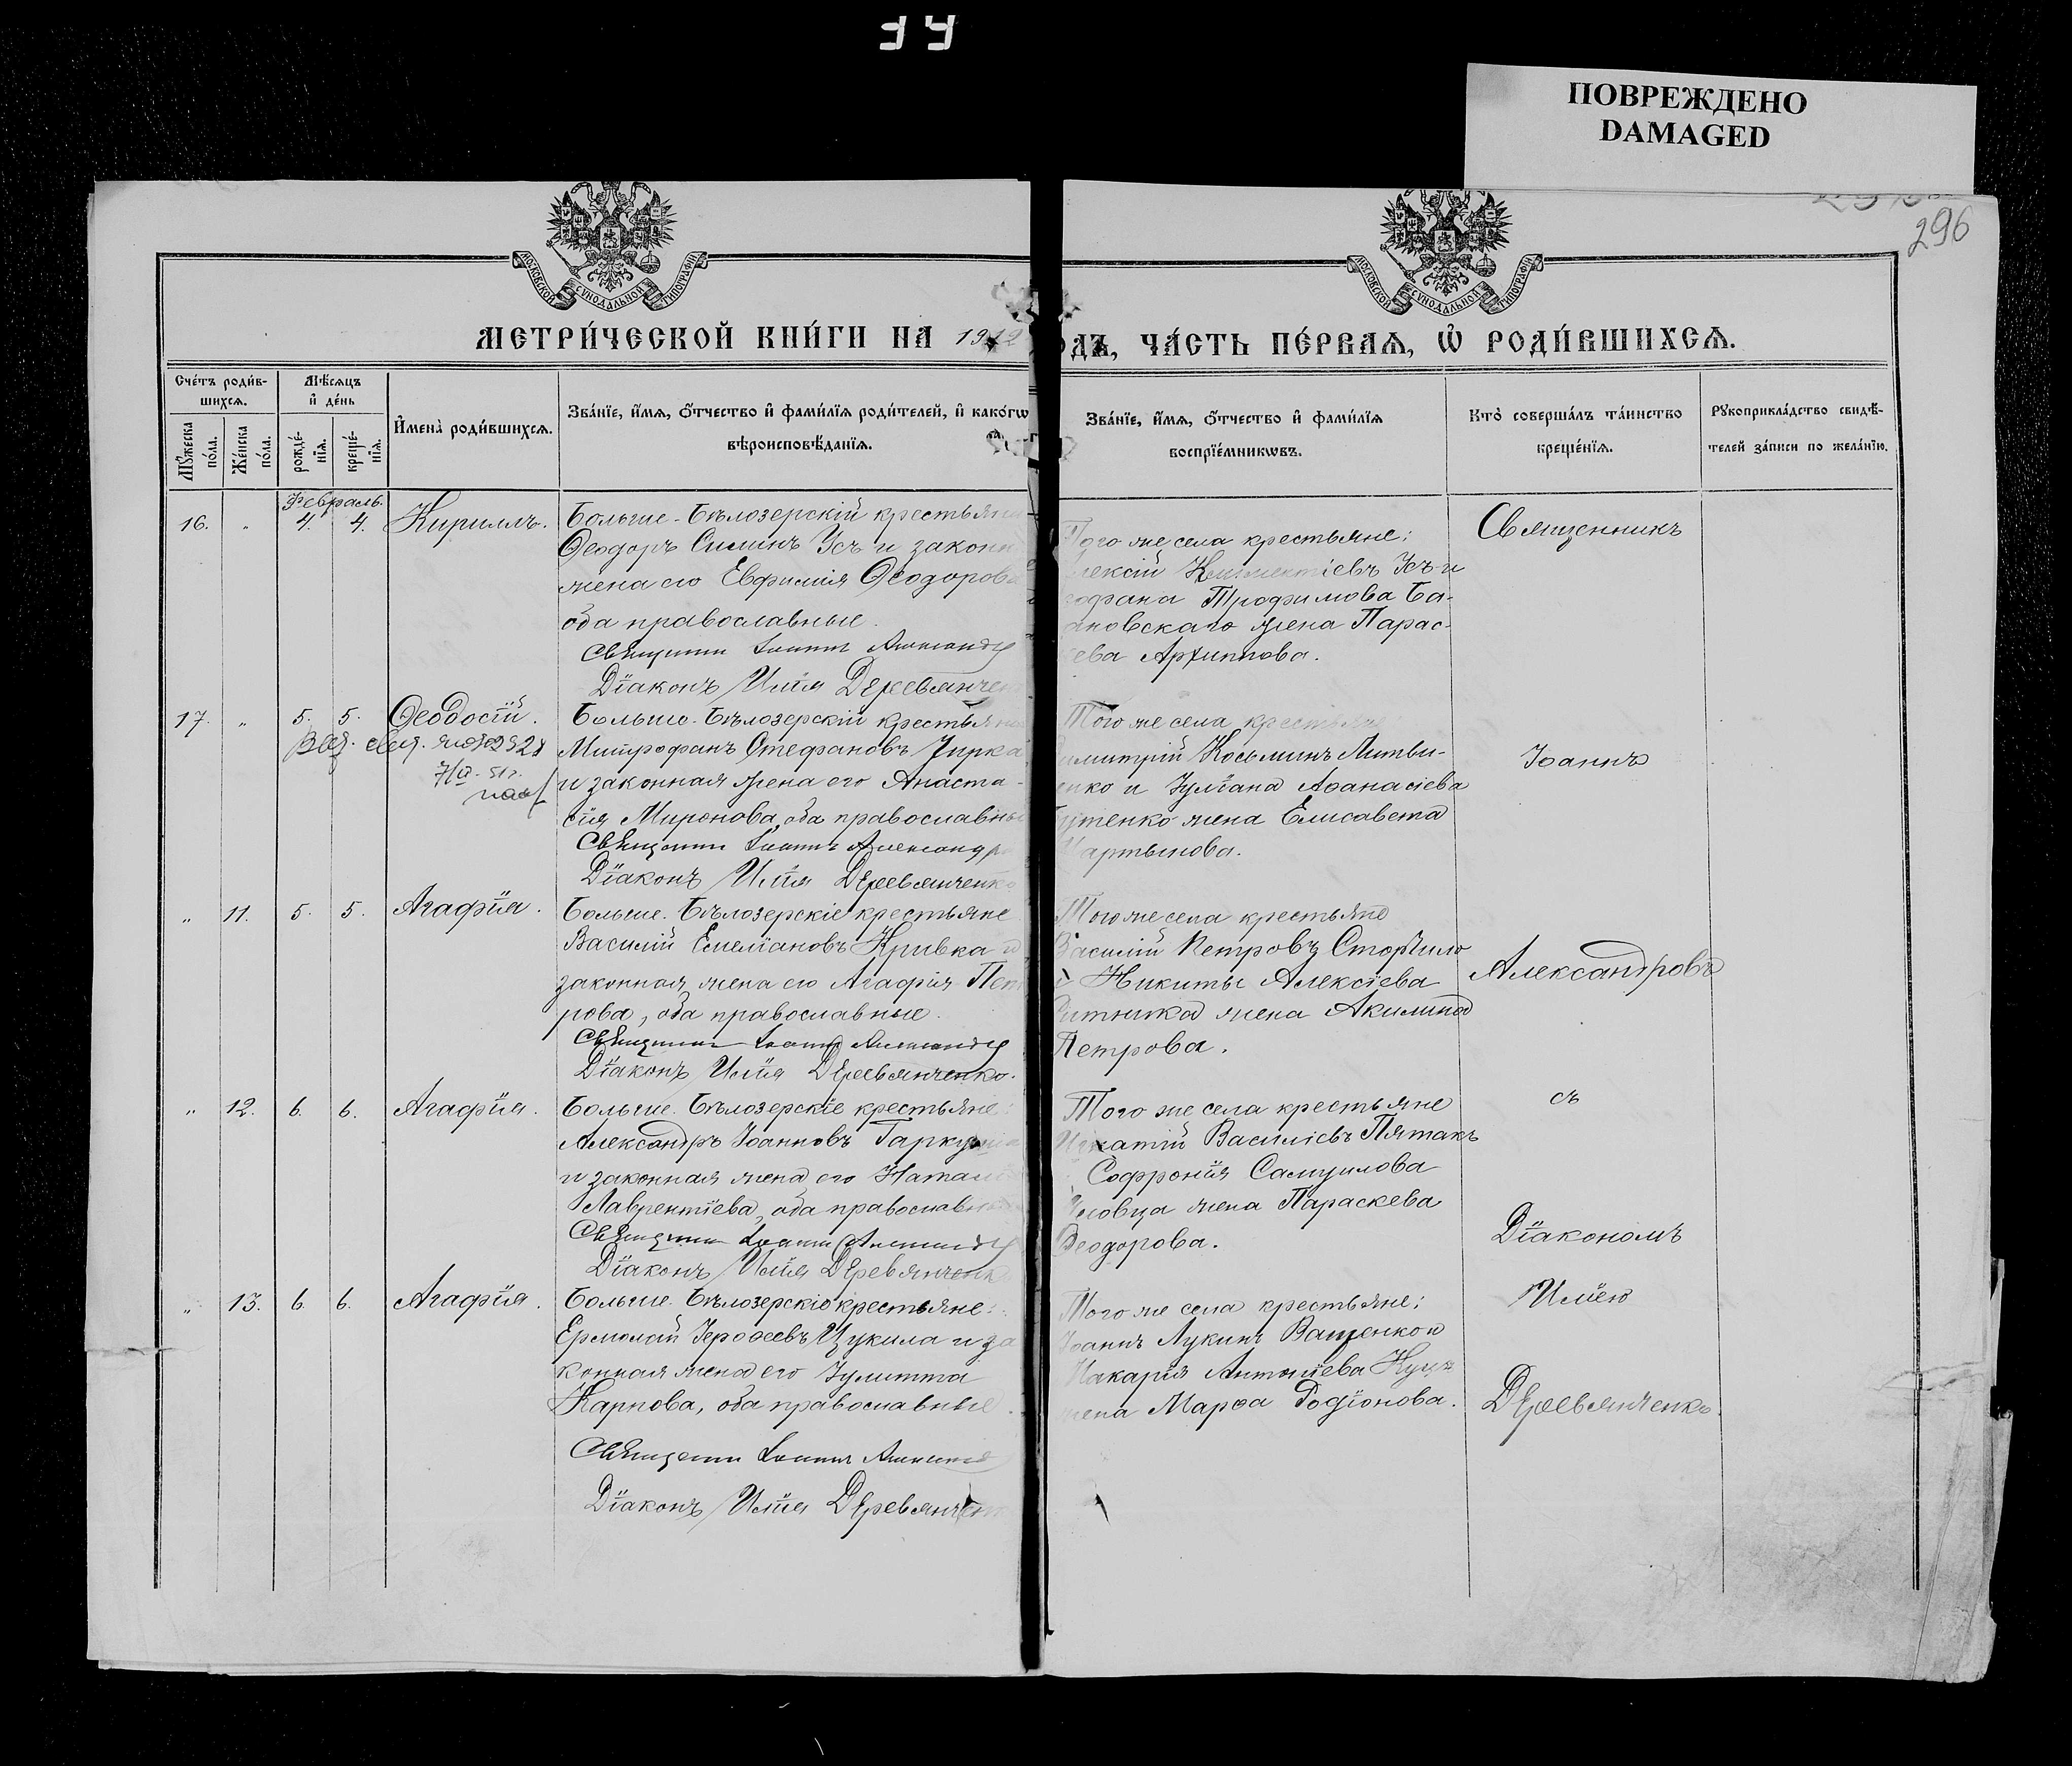 ПОВРЕЖДЕНО
DAMAGED
296
МОСКОВСКОЙ СѴНОДАЛЬНОЙ ТИПОГРАФІИ
МОСКОВСКОЙ СѴНОДАЛЬНОЙ ТИПОГРАФІИ
МЕТРИ́ЧЕСКОЙ КНИ́ГИ НА 1912
ОДЪ, ЧА́СТЬ ПЕ́РВАѦ, Ѡ҆ РОДИ́ВШИХСѦ.
Сче́тъ роди́в-
шихсѧ.
Мѣ́сяцъ
и҆ де́нь
Му́жеска
по́ла.
Же́нска
по́ла.
рожде́-
нїѧ.
креще́-
нїѧ.
И҆мена̀ роди́вшихсѧ.
Зва́нїе, и҆́мѧ, ѻ҆́тчество и҆ фами́лїѧ роди́телей, и҆ како́гѡ
вѣроисповѣ́данїѧ.
Зва́нїе, и҆́мѧ, ѻ҆́тчество и҆ фами́лїѧ
воспрїе́мникѡвъ.
Кто̀ соверша́лъ та́инство
креще́нїѧ.
Рꙋкоприкла́дство свидѣ́-
телей за́писи по жела́нїю.
Февраль.
16. " 4. 4. Кириллъ.
Больше-Бѣлозерскій крестьян
Ѳеодоръ Силинъ Усъ и законн
жена его Евфимія Ѳеодорова
оба православные.
Священни Іоаннъ Александр
Діаконъ Илія Деревянчен
Того же села крестьяне:
лексій Климентіевъ Усъ и
офана Трофимова Ба-
ановскаго жена Парас-
ева Архиппова.
Священникъ
17. " 5. 5. Ѳеодосій.
Больше-Бѣлозерскій крестьян
Митрофанъ Стефановъ Чирка
и законная жена его Анаста-
сія Миронова, оба православны
Священни Іоаннъ Александр
Діаконъ Илія Деревянченко
Того же села крестьяне
имитрій Косьминъ Литви-
нко и Іуліана Аѳанасіева
утенко жена Елисавета
Мартынова.
Іоаннъ
" 11. 5. 5. Агафія.
Больше-Бѣлозерскіе крестьяне
Василій Емеліановъ Кривка и
законная жена его Агафія Пет
рова, оба православные.
Священни Іоаннъ Александр
Діаконъ Илія Деревянченко.
Того же села крестьяне
Василій Петровъ Сторчило
и Никиты Алексіева
итника жена Акилина
Петрова.
Александровъ
" 12. 6. 6. Агафія.
Больше-Бѣлозерскіе крестьяне:
Александръ Іоанновъ Гаркуша
и законная жена его Натал
Лаврентіева, оба православн
Священни Іоаннъ Александр
Діаконъ Илія Деревянченк
Того же села крестьяне
Игнатій Василіевъ Пятакъ
Софронія Самуилова
ловца жена Параскева
Ѳеодорова.
съ
Діакономъ
" 13. 6. 6. Агафія.
Больше-Бѣлозерскіе крестьяне:
Ермолай Іероѳеевъ Цукила и за
конная жена его Іулитта
Карпова, оба православные.
Священни Іоаннъ Александ
Діаконъ Илія Деревянчен
Того же села крестьяне:
Іоаннъ Лукинъ Ващенко и
Макарія Антоніева Куць
жена Марѳа Родіонова.
Иліею
Деревянченко.